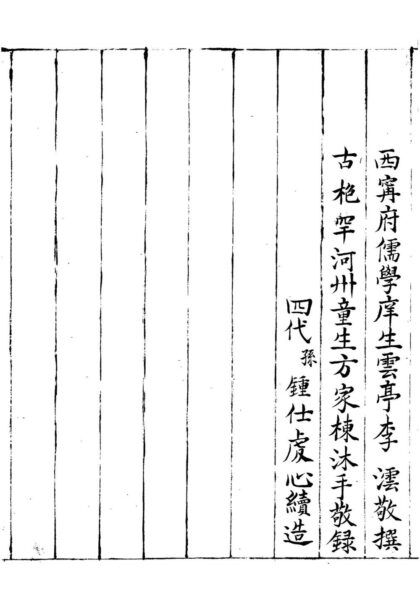 西寗府儒學庠生雲亭李 澐敬撰
古枹罕河州童生方家棟沐手敬録
四代孫鍾仕虔心續造